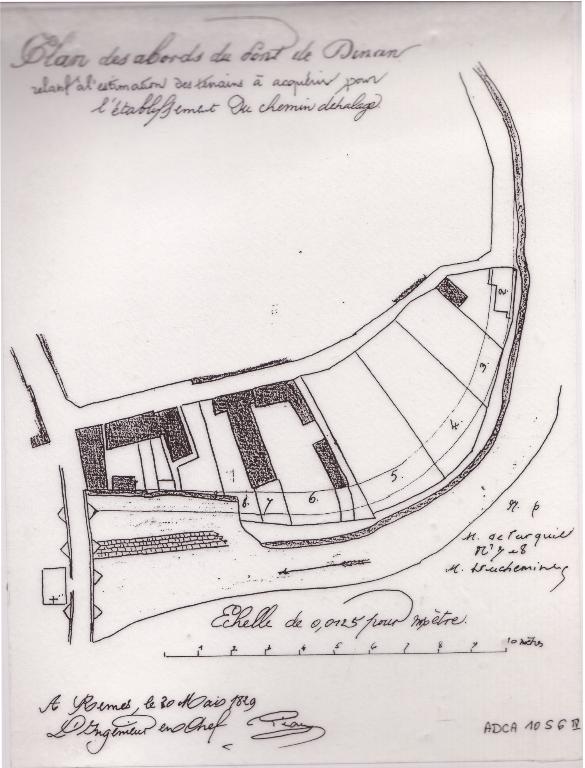 Plan des abords du Pont de Dinan
relatif à l'estimation des terrains à acquérir pour
l'établissement du chemin de halage.
2.
3.
4.
5.
6.
7
8.
N. p
M. de
Nos 7 et 8
M.
Echelle de 0,0125 pour mètre.
1 2 3 4 5 6 7 8 9 10 mètres
A Rennes, le 30 Mars 1829
L'Ingénieur en Chef
ADCA 10 S 6